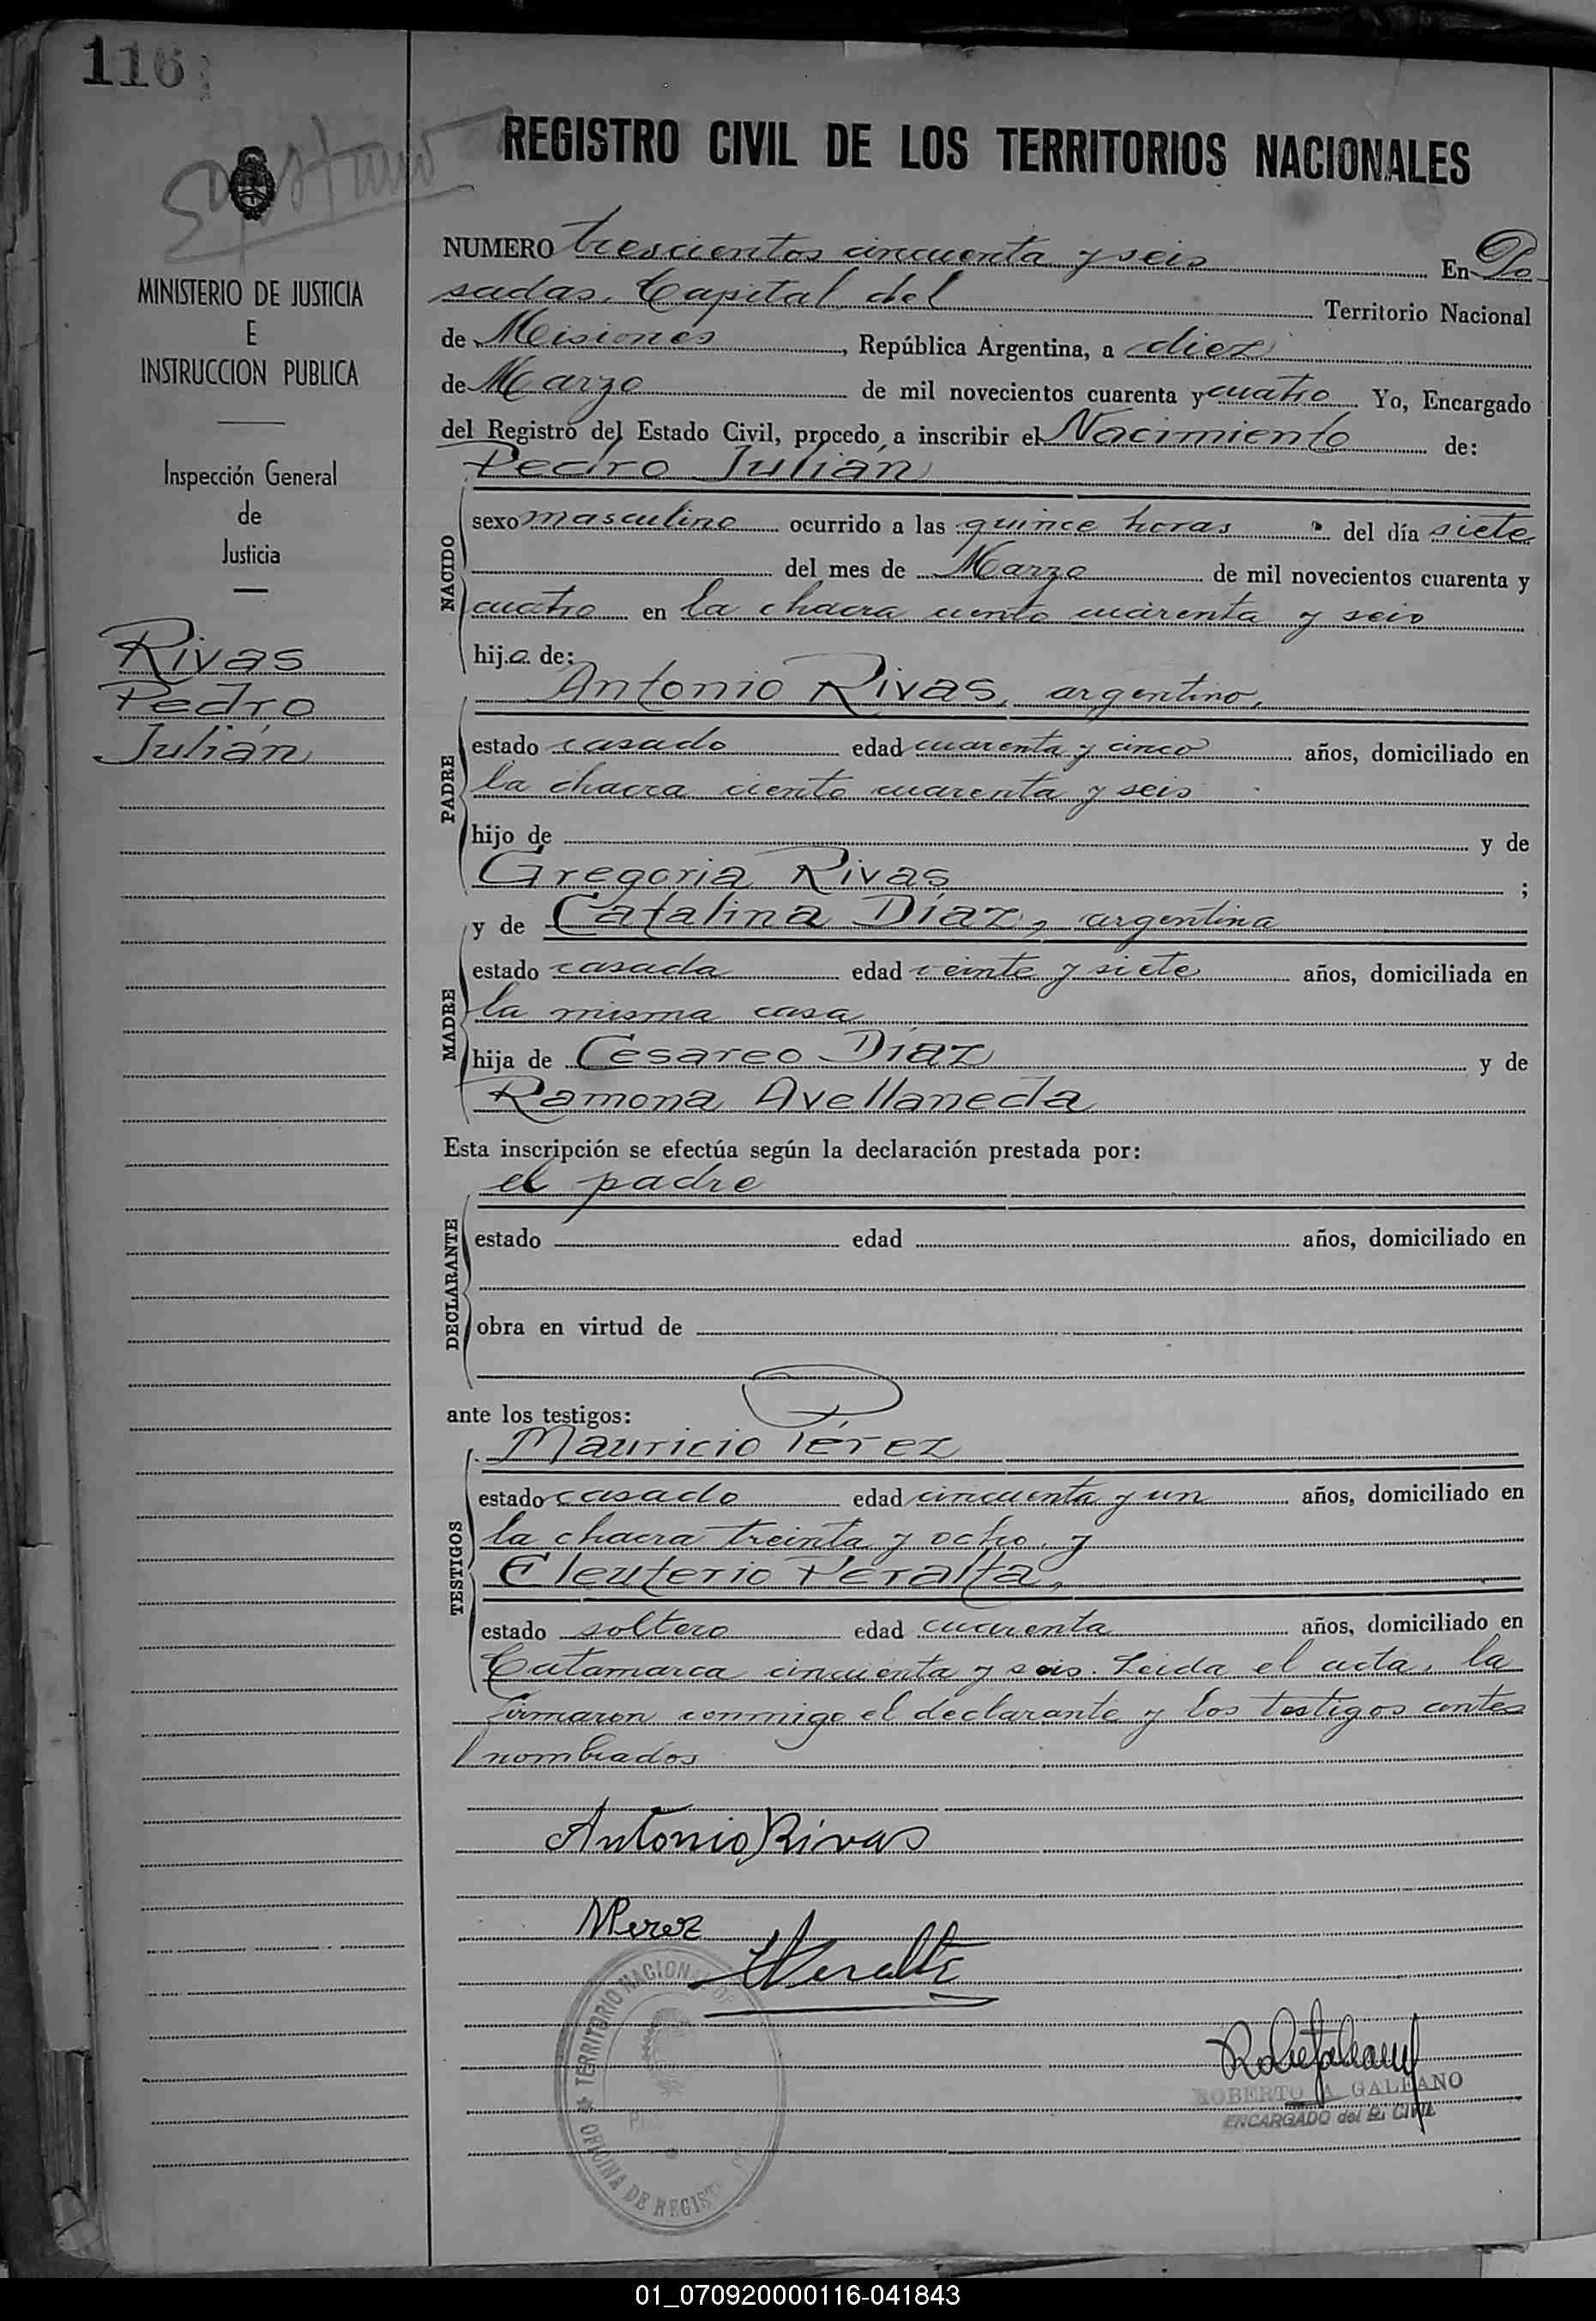 116
REGISTRO CIVIL DE LOS TERRITORIOS NACIONALES
MINISTERIO DE JUSTICIA
E
INSTRUCCION PUBLICA
Inspección General
de
Justicia
Rivas
Pedro
Julián
NUMERO trescientos cincuenta y seis En Po-
sadas, Capital del Territorio Nacional
de Misiones, República Argentina, a diez
de Marzo de mil novecientos cuarenta y cuatro Yo, Encargado
del Registro del Estado Civil, procedo a inscribir el Nacimiento de:
Pedro Julián
NACIDO
sexo masculino ocurrido a las quince horas del día siete
del mes de Marzo de mil novecientos cuarenta y
cuatro en la chacra ciento cuarenta y seis
hijo de:
Antonio Rivas, argentino,
PADRE
estado casado edad cuarenta y cinco años, domiciliado en
la chacra ciento cuarenta y seis
hijo de y de
Gregoria Rivas ;
y de Catalina Díaz, argentina
MADRE
estado casada edad veinte y siete años, domiciliada en
la misma casa
hija de Cesareo Díaz y de
Ramona Avellaneda
Esta inscripción se efectúa según la declaración prestada por:
el padre
DECLARANTE
estado edad años, domiciliado en
obra en virtud de
ante los testigos:
Mauricio Pérez
TESTIGOS
estado casado edad cincuenta y un años, domiciliado en
la chacra treinta y ocho, y
Eleuterio Peralta,
estado soltero edad cuarenta años, domiciliado en
Catamarca cincuenta y seis. Leida el acta, la
firmaron conmigo el declarante y los testigos antes
nombrados
Antonio Rivas
MPerez
Peralta
TERRITORIO NACIONAL DE
OFICINA DE REGIST
ROBERTO A. GALEANO
ENCARGADO del R. CIVIL
01_070920000116-041843